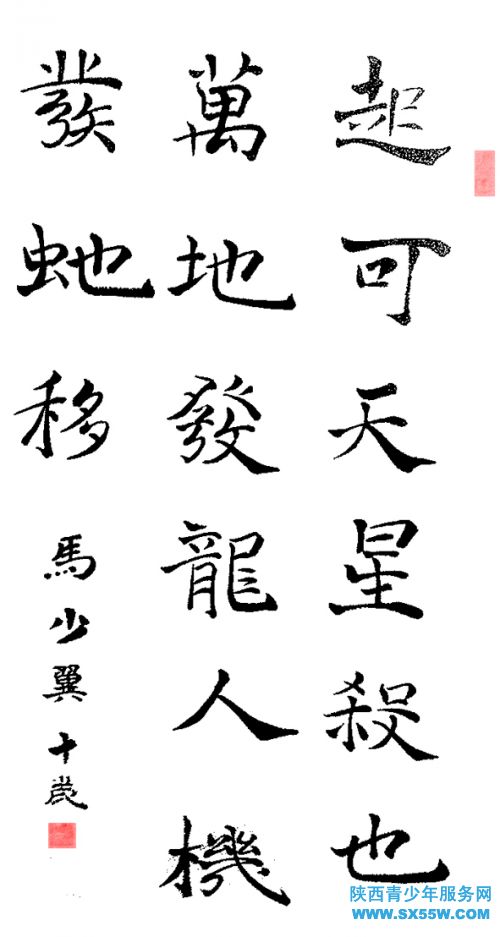 起可天星殺也
萬地發龍人機
發虵移
馬少翼十歲
陕西青少年服务网
www.sx55w.com